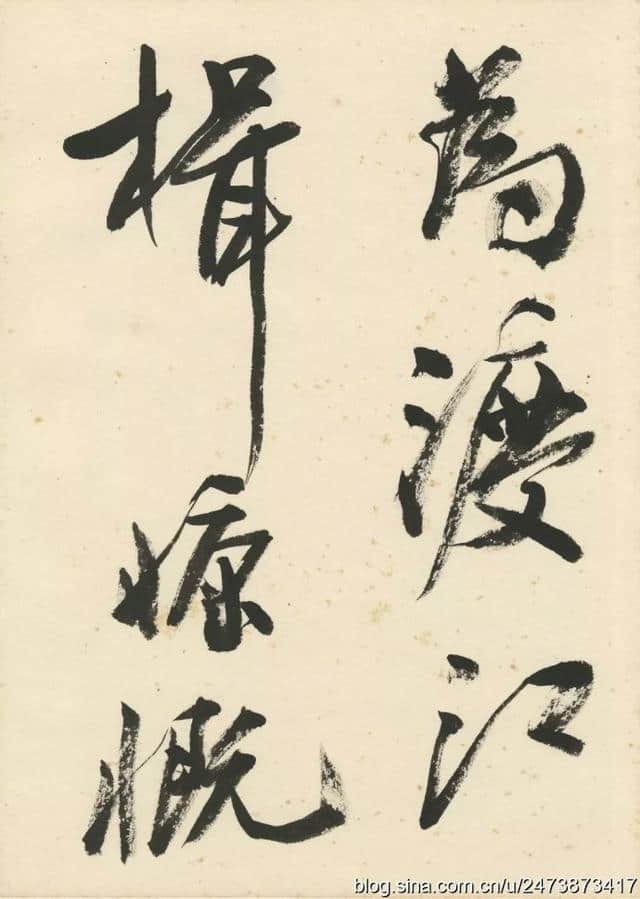 為渡江
楫慷慨
blog.sina.com.cn/u/2473873417